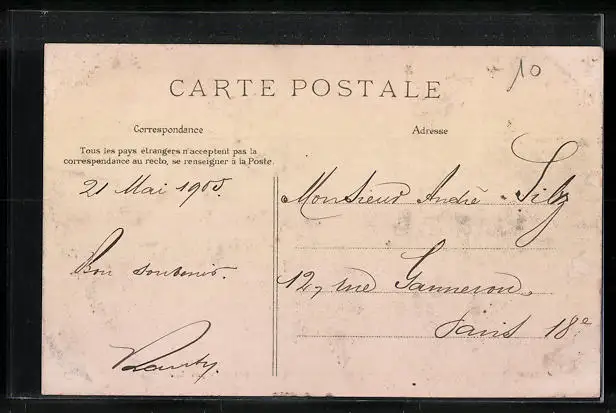 10
CARTE POSTALE
Correspondance
Adresse
Tous les pays étrangers n'acceptent pas la
correspondance au recto, se renseigner à la Poste.
21 Mai 1905.
Bon souvenir.
Monsieur André
12, rue Ganneron,
Paris 18e